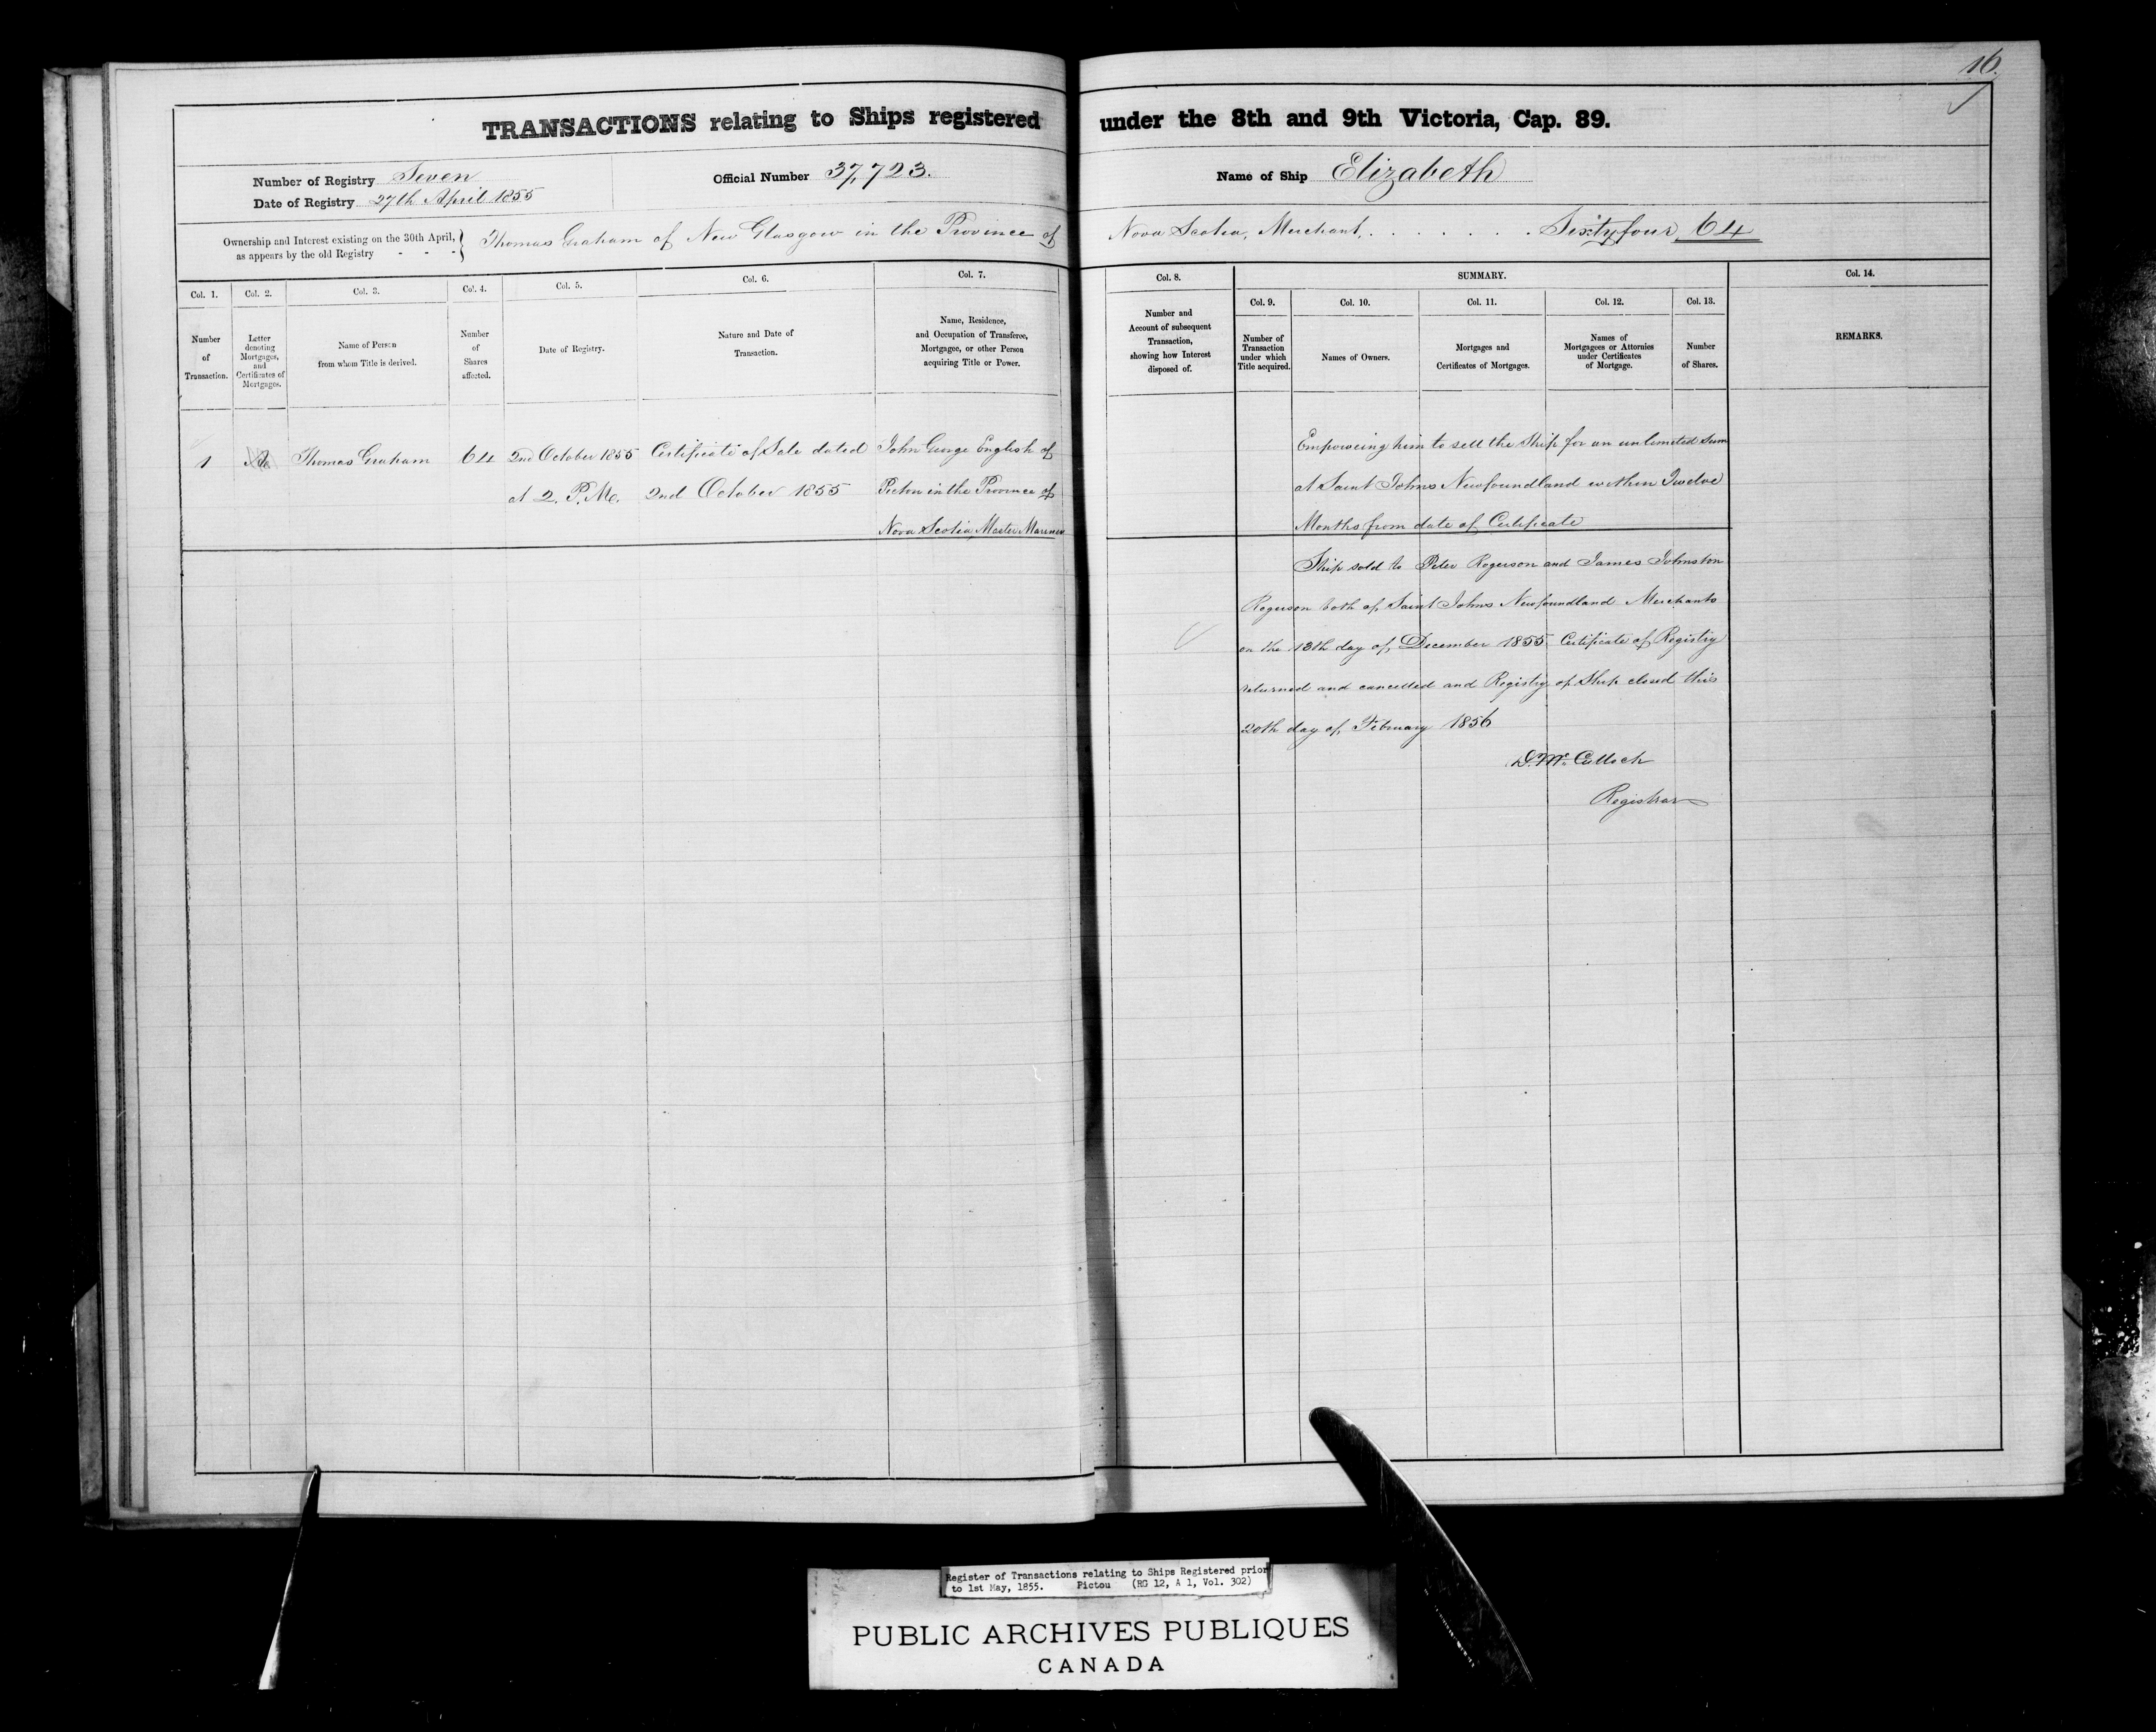 16.
TRANSACTIONS relating to Ships registered under the 8th and 9th Victoria, Cap. 89.
Number of Registry Seven
Date of Registry 27th April 1855
Official Number 37,723.
Name of Ship Elizabeth
Ownership and Interest existing on the 30th April, as appears by the old Registry - - - } Thomas Graham of New Glasgow in the Province of Nova Scotia, Merchant, . . . . . . . Sixty four 64
Col. 1.
Number
of
Transaction.
Col. 2.
Letter
denoting
Mortgages,
and
Certificates of
Mortgages.
Col. 3.
Name of Person
from whom Title is derived.
Col. 4.
Number
of
Shares
affected.
Col. 5.
Date of Registry.
Col. 6.
Nature and Date of
Transaction.
Col. 7.
Name, Residence,
and Occupation of Transferee,
Mortgagee, or other Person
acquiring Title or Power.
Col. 8.
Number and
Account of subsequent
Transaction,
showing how Interest
disposed of.
SUMMARY.
Col. 9.
Number of
Transaction
under which
Title acquired.
Col. 10.
Names of Owners.
Col. 11.
Mortgages and
Certificates of Mortgages.
Col. 12.
Names of
Mortgagees or Attornies
under Certificates
of Mortgage.
Col. 13.
Number
of Shares.
Col. 14.
REMARKS.
1
Thomas Graham
64
2nd October 1855
at 2. P.M.
Certificate of Sale dated
2nd October 1855
John George English of
Pictou in the Province of
Nova Scotia Master Mariner
Empowering him to sell the Ship for an unlimited Sum
at Saint Johns Newfoundland within Twelve
Months from date of Certificate
Ship sold to Peter Rogerson and James Johnston
Rogerson both of Saint Johns Newfoundland Merchants
on the 13th day of December 1855. Certificate of Registry
returned and cancelled and Registry of Ship closed this
20th day of February 1856
D. Mc. Culloch
Registrar
Register of Transactions relating to Ships Registered prior
to 1st May, 1855. Pictou (RG 12, A 1, Vol. 302)
PUBLIC ARCHIVES PUBLIQUES
CANADA